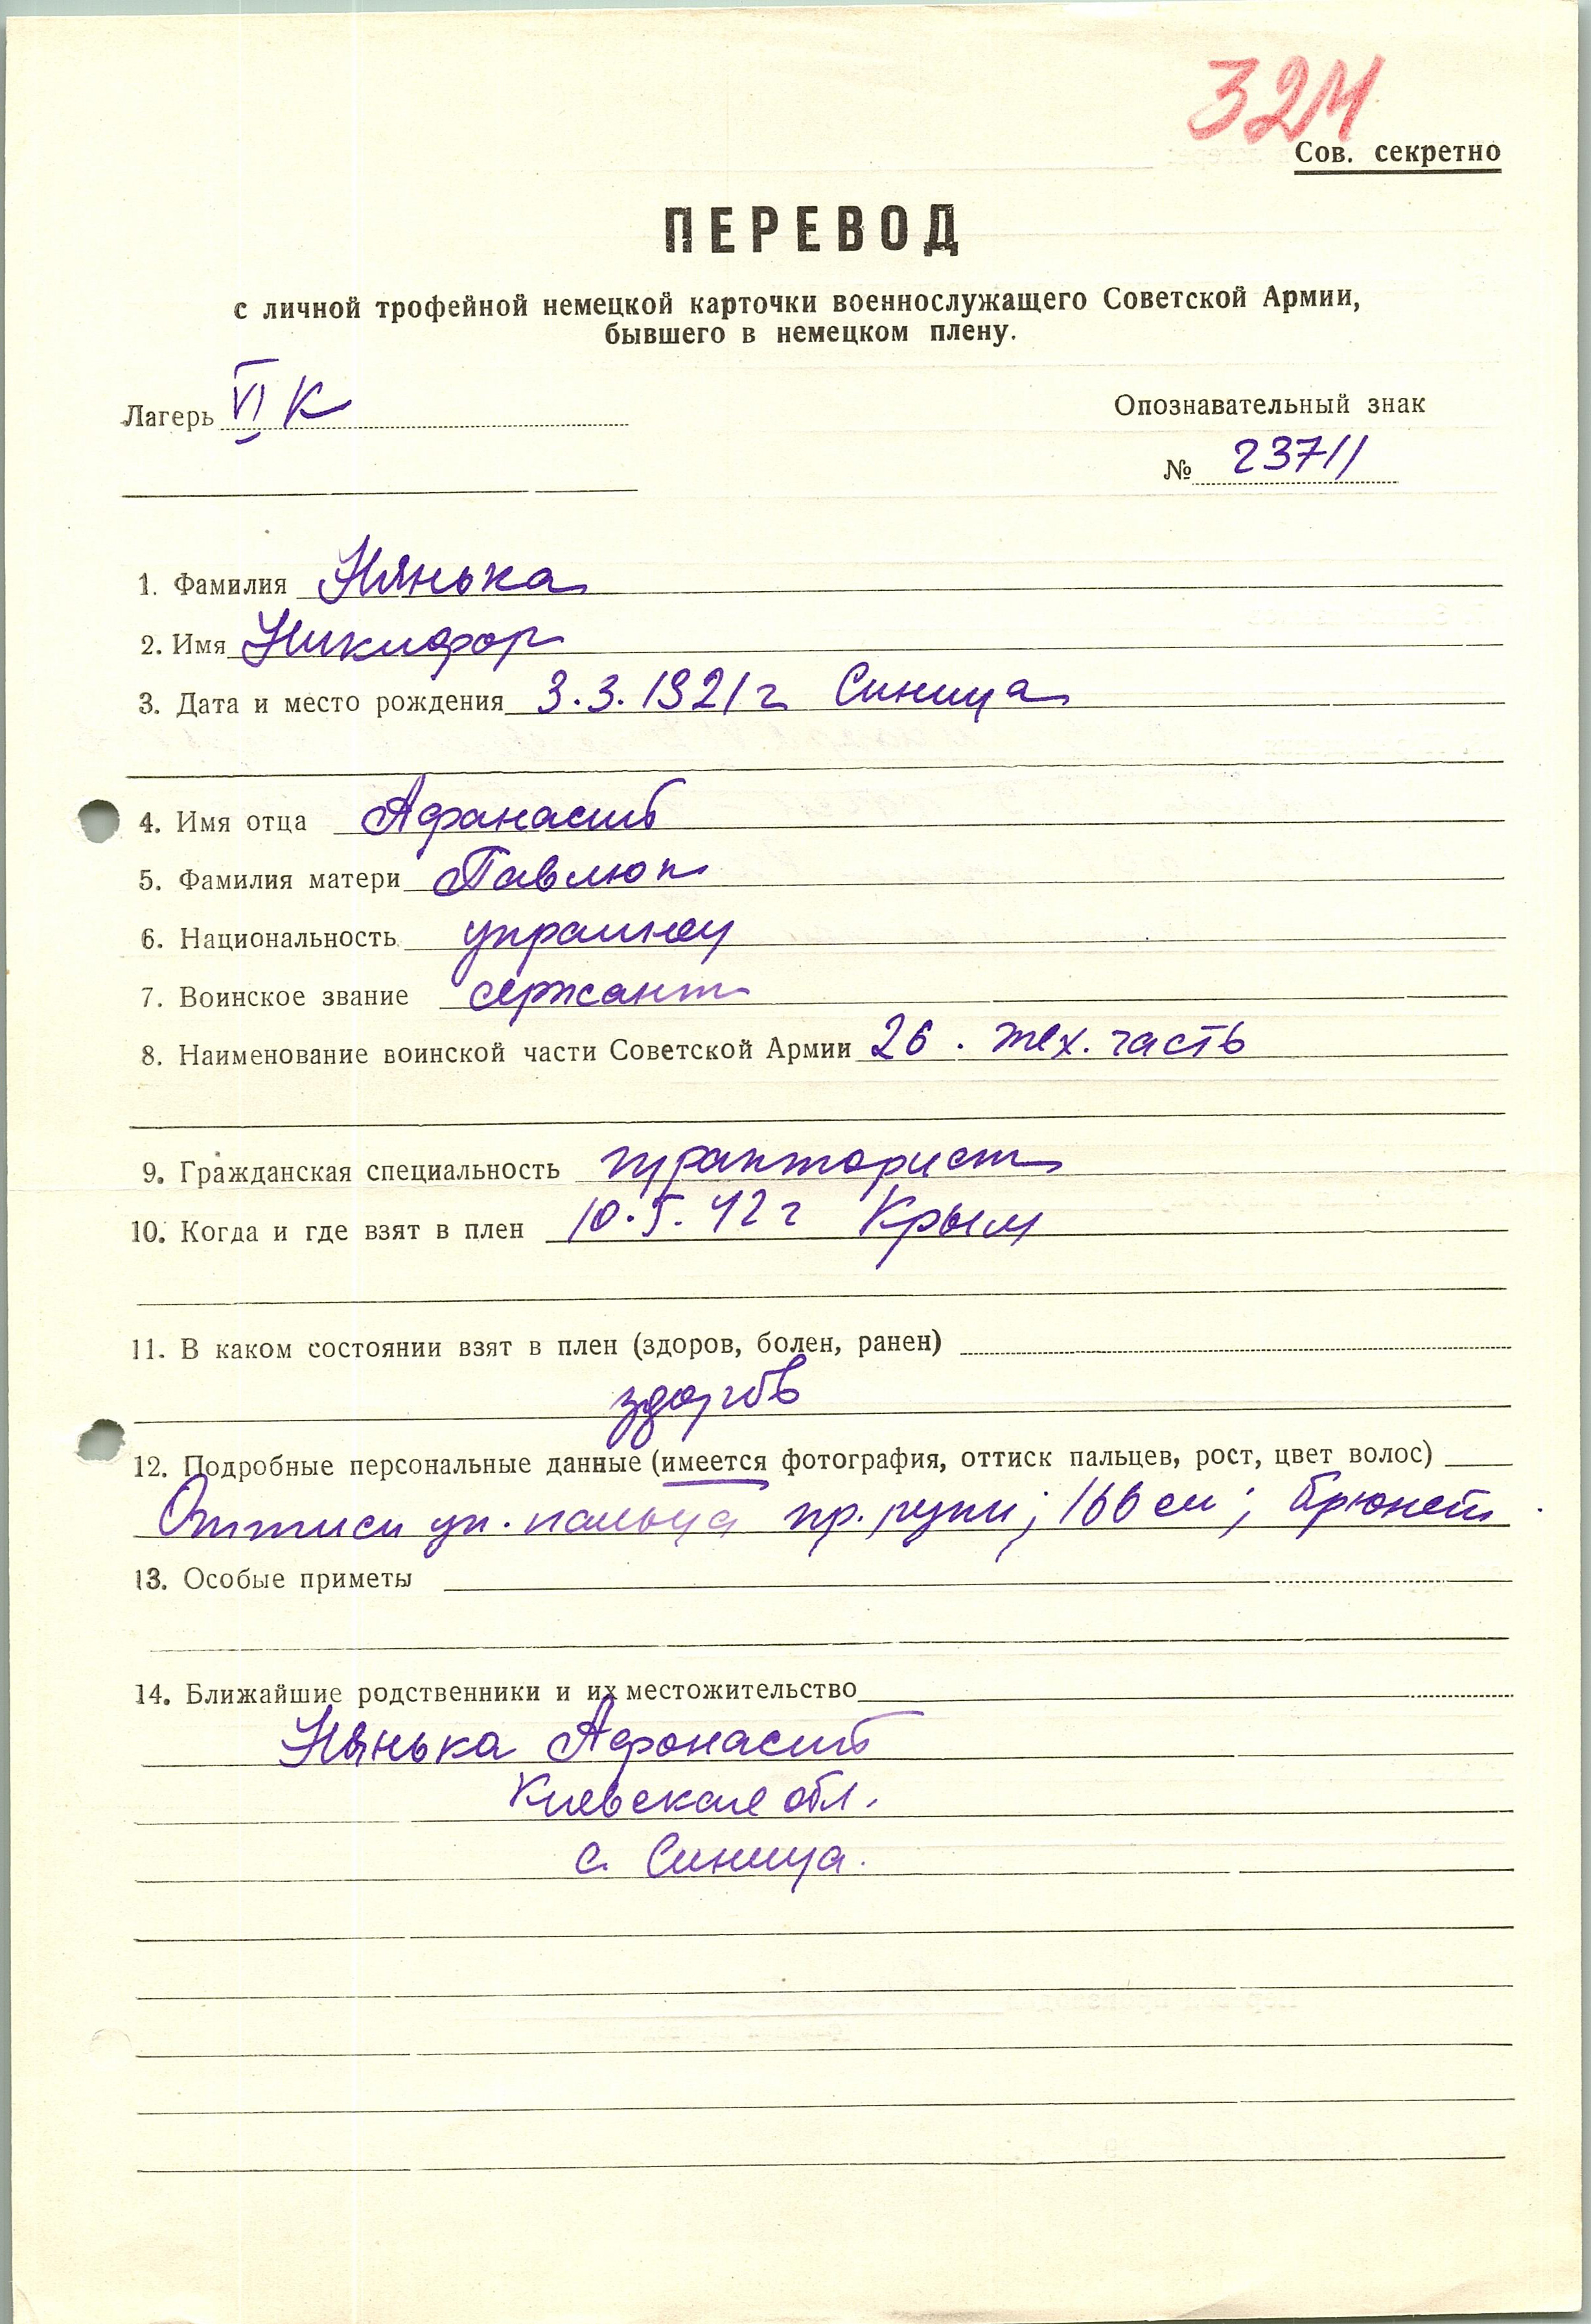 324
Сов. секретно
ПЕРЕВОД
с личной трофейной немецкой карточки военнослужащего Советской Армии,
бывшего в немецком плену.
Лагерь VI К
Опознавательный знак
№ 23711
1. Фамилия Нянька
2. Имя Никифор
3. Дата и место рождения 3.3.1921 г Синица
4. Имя отца Афанасий
5. Фамилия матери Павлюк
6. Национальность украинец
7. Воинское звание сержант
8. Наименование воинской части Советской Армии 26. мех. часть
9. Гражданская специальность тракторист
10. Когда и где взят в плен 10.5.42 г Крым
11. В каком состоянии взят в плен (здоров, болен, ранен)
здоров
12. Подробные персональные данные (имеется фотография, оттиск пальцев, рост, цвет волос)
Оттиск ук. пальца пр. руки; 166 см; брюнет
13. Особые приметы
14. Ближайшие родственники и их местожительство
Нянька Афонасий
Киевская обл.
с. Синица.